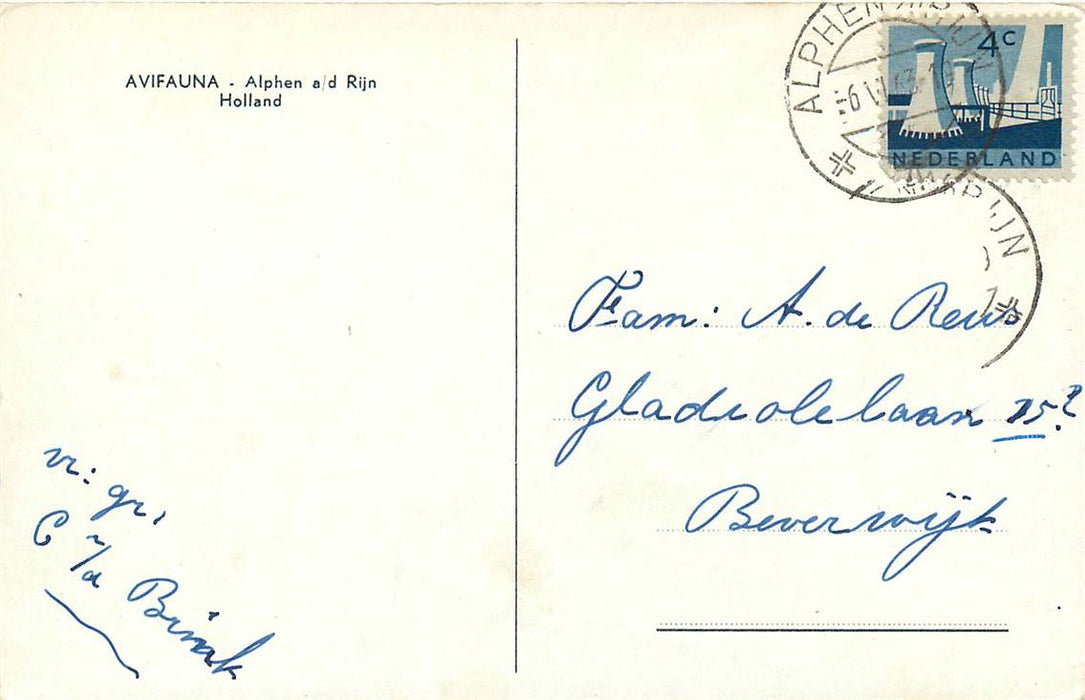 AVIFAUNA - Alphen a/d Rijn
Holland
ALPHEN A/D RIJN
4c
NEDERLAND
RIJN
Fam: A. de Reus
Gladiolelaan 15?
Beverwijk
vr: gr,
C v/d Brink